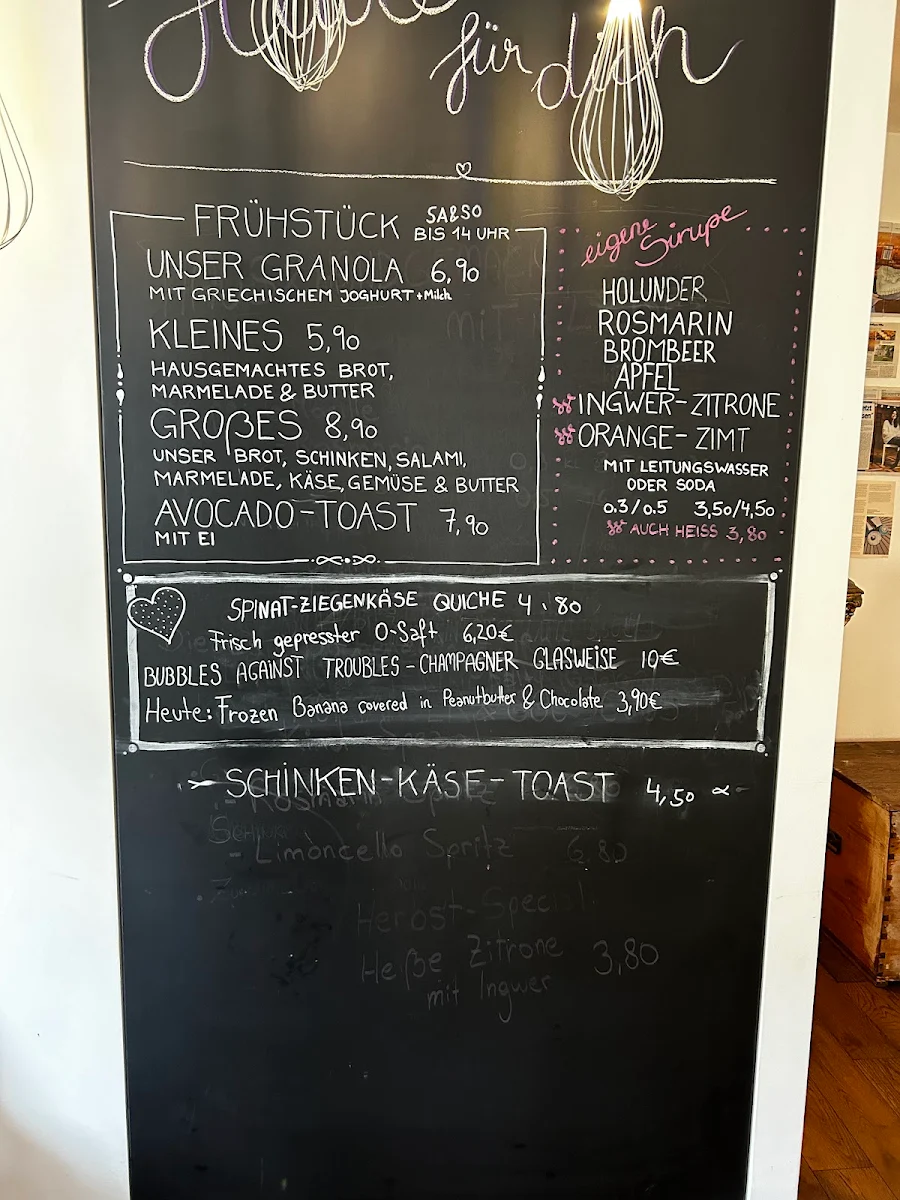 für dich
FRÜHSTÜCK SA&SO
BIS 14 UHR
UNSER GRANOLA 6,90
MIT GRIECHISCHEM JOGHURT + Milch
KLEINES 5,90
HAUSGEMACHTES BROT,
MARMELADE & BUTTER
GROßES 8,90
UNSER BROT, SCHINKEN, SALAMI,
MARMELADE, KÄSE, GEMÜSE & BUTTER
AVOCADO-TOAST 7,90
MIT EI
eigene Sirupe
HOLUNDER
ROSMARIN
BROMBEER
APFEL
INGWER-ZITRONE
ORANGE-ZIMT
MIT LEITUNGSWASSER
ODER SODA
0.3/0.5 3,50/4,50
AUCH HEISS 3,80
SPINAT-ZIEGENKÄSE QUICHE 4,80
Frisch gepresster O-Saft 6,20€
BUBBLES AGAINST TROUBLES - CHAMPAGNER GLASWEISE 10€
Heute: Frozen Banana covered in Peanutbutter & Chocolate 3,90€
SCHINKEN-KÄSE-TOAST 4,50
- Limoncello Spritz 6,80
Herbst-Special
Heiße Zitrone 3,80
mit Ingwer